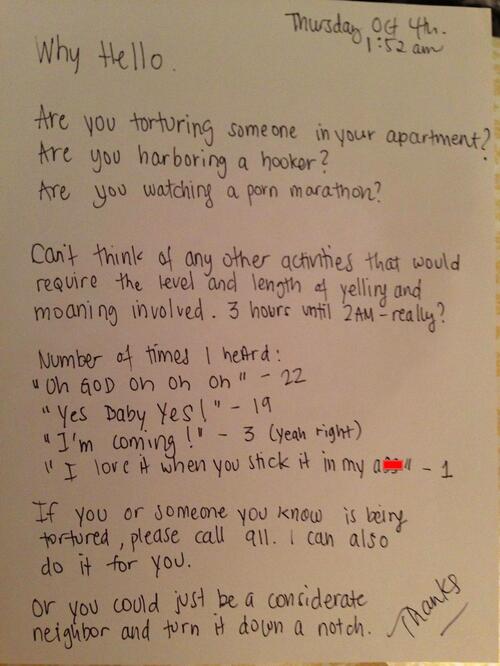 Thursday Oct 4th.
1:52 am
Why Hello.
Are you torturing someone in your apartment?
Are you harboring a hooker?
Are you watching a porn marathon?
Can't think of any other activities that would
require the level and length of yelling and
moaning involved. 3 hours until 2AM - really?
Number of times I heard:
"Oh GOD oh oh oh" - 22
"Yes Baby Yes!" - 19
"I'm coming!" - 3 (yeah right)
"I love it when you stick it in my a" - 1
If you or someone you know is being
tortured, please call 911. I can also
do it for you.
Or you could just be a considerate
neighbor and turn it down a notch.
Thanks